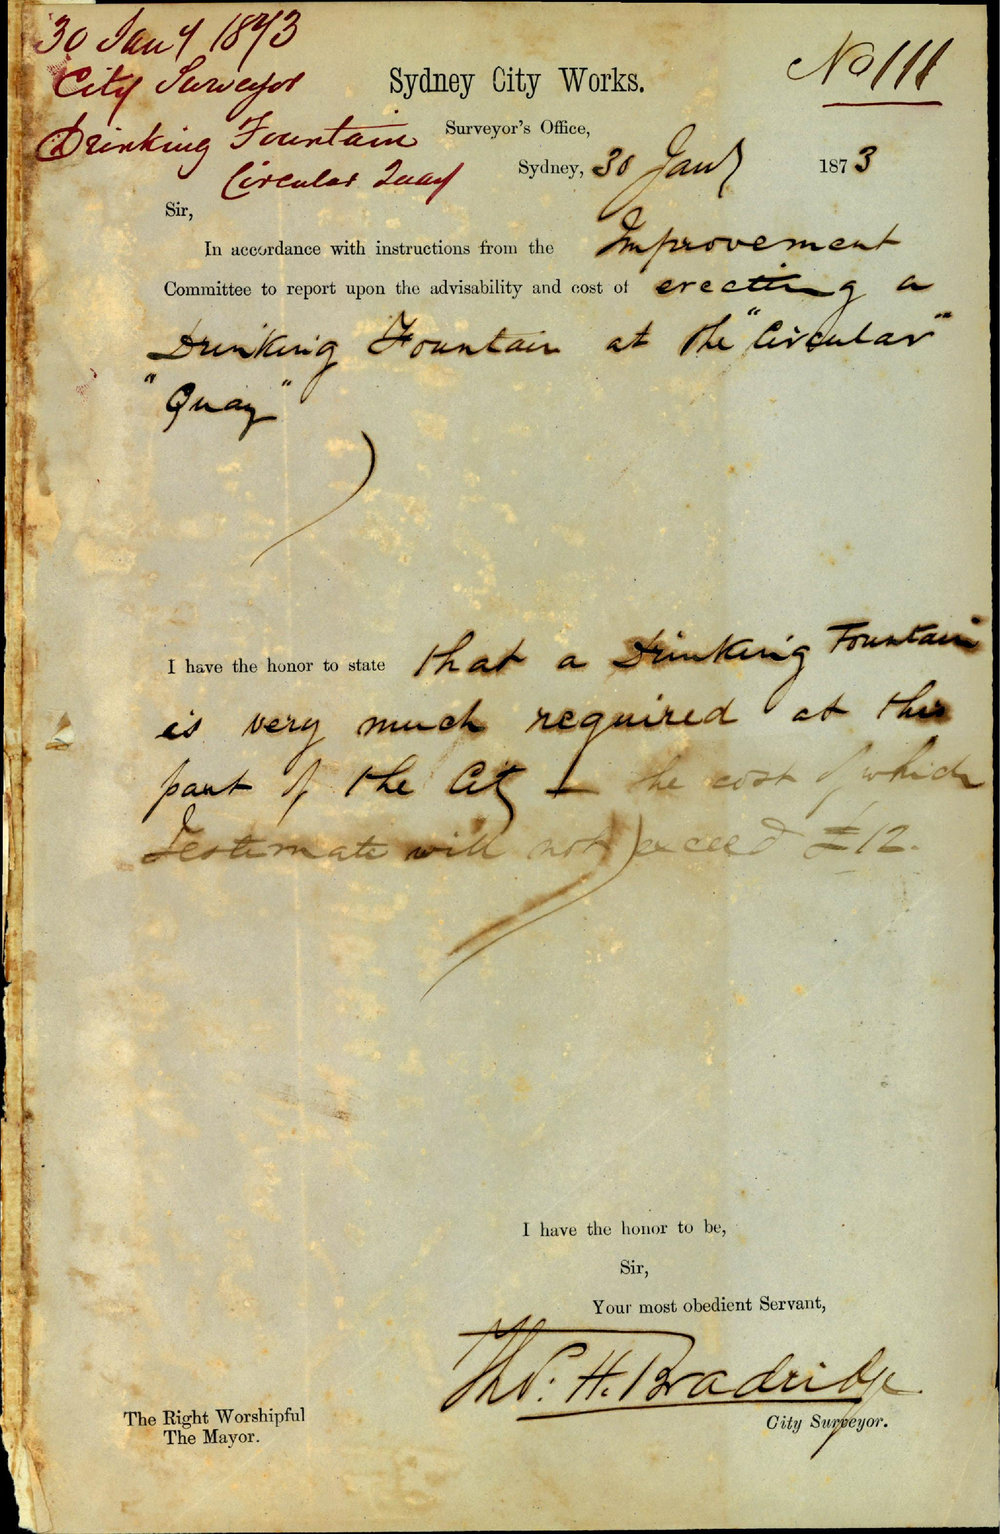 30 Jany 1873
City Surveyor
Drinking Fountain
Circular Quay
No 111
Sydney City Works.
Surveyor's Office,
Sydney, 30 Jany 1873
Sir,
In accordance with instructions from the Improvement
Committee to report upon the advisability and cost of erecting a
Drinking Fountain at the "Circular"
"Quay"
I have the honor to state that a Drinking Fountain
is very much required at this
part of the City – the cost of which
I estimate will not exceed £12.
I have the honor to be,
Sir,
Your most obedient Servant,
Thos. H. Bradridge
City Surveyor.
The Right Worshipful
The Mayor.